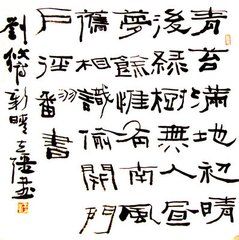 青苔滿地初晴
後綠樹無人晝
夢餘惟有南風
舊相識偷開門
戶徑翻書
劉攽新晴